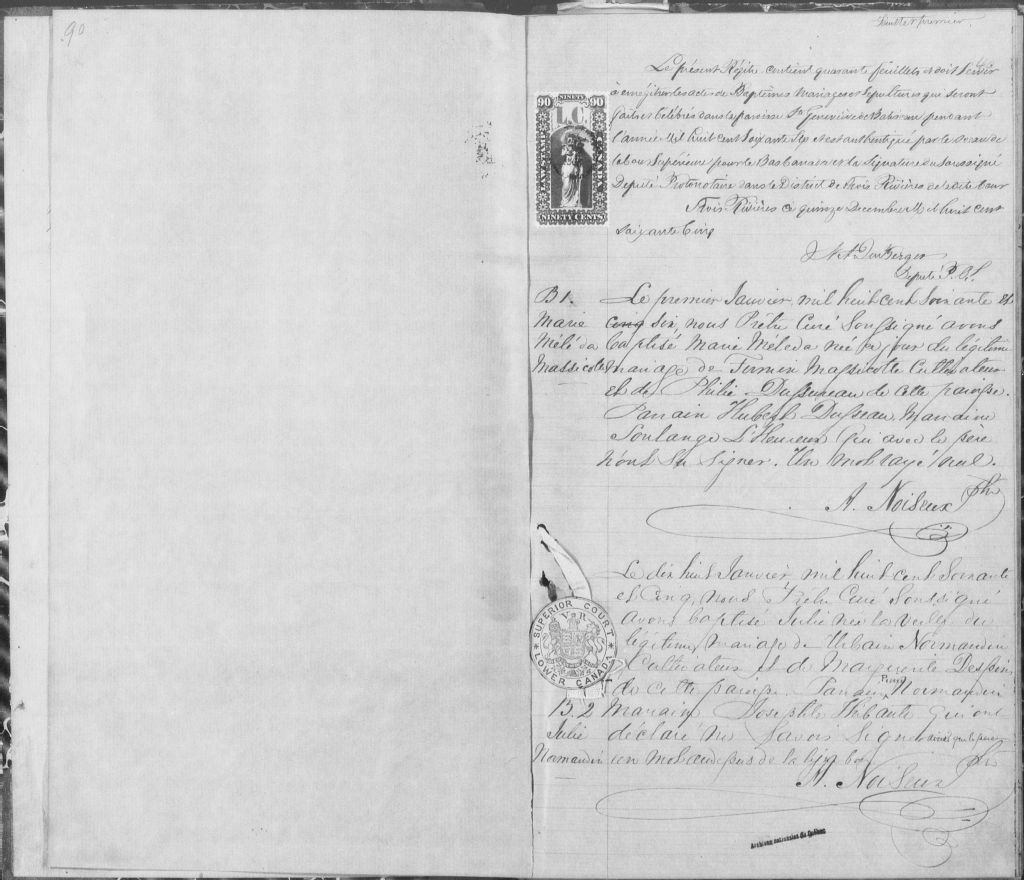 90
Feuillet premier.
Le présent Régistre contient quarante feuillets et doit servir
à enrégistrer les actes de Baptêmes Mariages et Sépultures qui seront
faits et Célébrés dans la paroisse Ste Geneviève de Batiscan pendant
l'année Mil huit cent Soixante Six et est authentiqué par le Sceau de
la Cour Supérieure pour le Bas Canada et la Signature du Soussigné
Député Protonotaire dans le District de Trois Rivières de la dite Cour
Trois Rivières ce quinze Decembre Mil huit cent
soixante Cinq
Député P. C. S.
NINETY
90 90
L.C.
NINETY CENTS
B 1.
Marie
Méléda
Massicotte
Le premier Janvier, mil huit cent soixante et
cinq six, nous Prêtre Curé Soussigné avons
baptisé Marie Méleda née ce jour du légitime
mariage de Firmin Massicotte Cultivateur
et de Philie Dussureau de cette paroisse.
Parrain Hubert Dusseau, Marraine
Soulange L'Heureux qui avec le père
n'ont su signer. Un mot rayé nul.
A. Noiseux Ptre
SUPERIOR COURT
V R
LOWER CANADA
Le dix huit Janvier, mil huit cent Soixante
et Cinq, nous Prêtre Curé Soussigné
avons baptisé Julie née la veille du
légitime mariage de Urbain Normandin
Cultivateur et de Marguerite
de cette paroisse. Parrain Normandin
B. 2
Julie
Normandin
Marraine Josephte Thibaute qui ont
déclaré ne savoir signer ainsi que le père
un mot au dessus de la ligne bon
A. Noiseux Ptre
Archives nationales du Québec